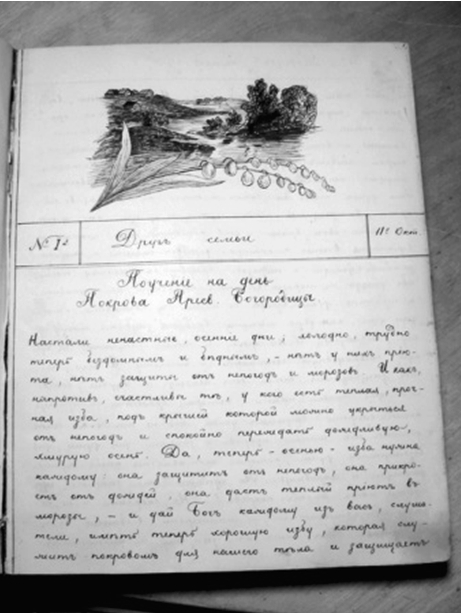 № 1й
Другъ семьи
11го Окт.
Поученіе на день
Покрова Пресв. Богородицы.
Настали ненастные, осенніе дни; холодно, трудно
теперь бездомнымъ и бѣднымъ, - нѣтъ у нихъ прію-
та, нѣтъ защиты отъ непогодъ и морозовъ. И какъ,
напротивъ, счастливы тѣ, у кого есть теплая, проч-
ная изба, подъ крышей которой можно укрыться
отъ непогодъ и спокойно переждать дождливую,
хмурую осень. Да, теперь - осенью - изба нужна
каждому: она защититъ отъ непогодъ, она прикро-
етъ отъ дождей, она дастъ теплый пріютъ въ
морозы, - и дай Богъ каждому изъ васъ, слуша-
тели, имѣть теперь хорошую избу, которая слу-
житъ покровомъ для нашего тѣла и защищаетъ